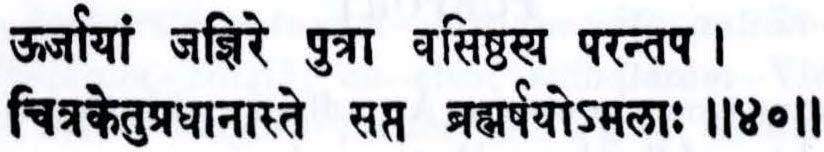 ऊर्जायां जज्ञिरे पुत्रा वसिष्ठस्य परन्तप ।
चित्रकेतुप्रधानास्ते सप्त ब्रह्मर्षयोऽमलाः ॥४०॥